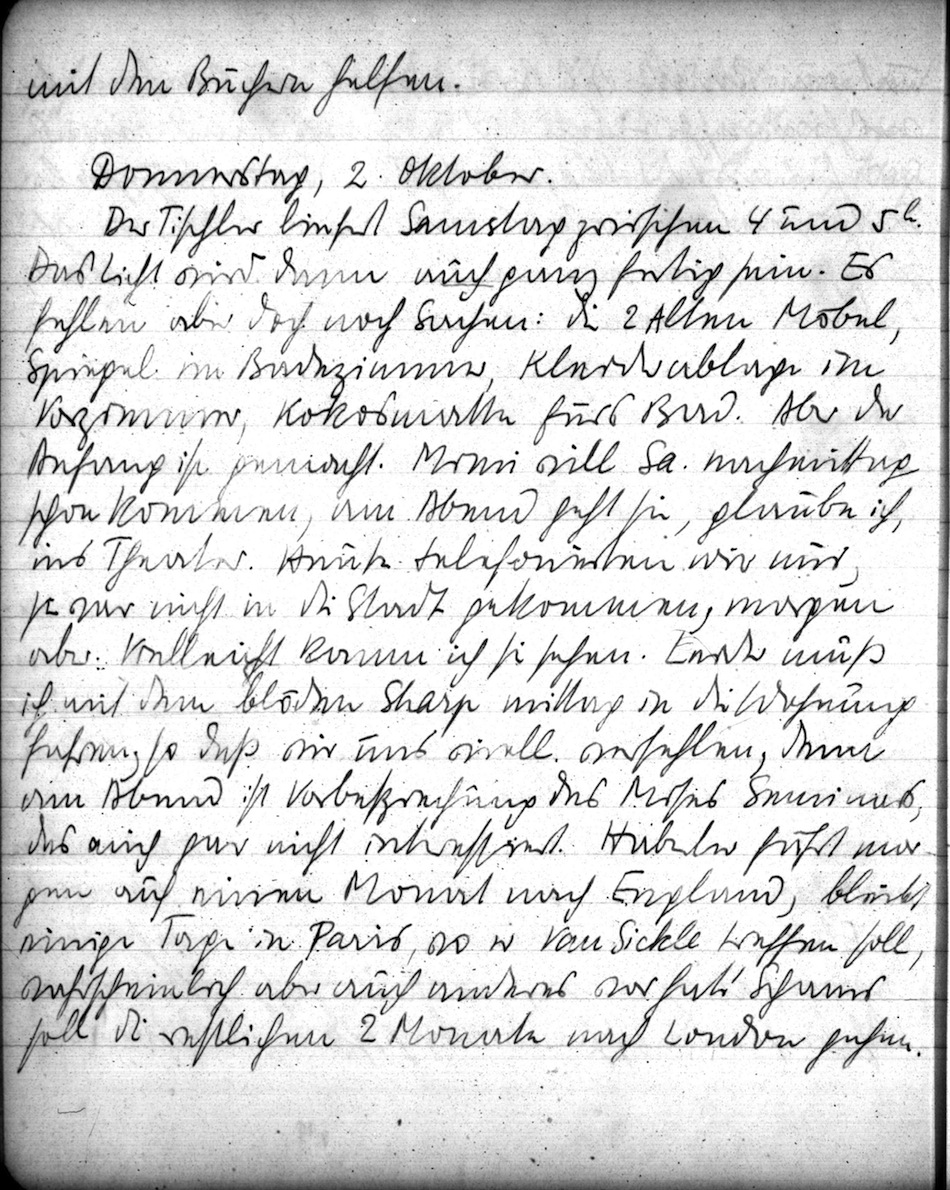 mit den Büchern helfen.
Donnerstag, 2. Oktober.
Der Tischler liefert Samstag zwischen 4 und 5h.
Das Licht wird dann auch ganz fertig sein. Es
fehlen aber doch noch Sachen: die 2 Alten Möbel,
Spiegel im Badezimmer, Kleiderablage im
Vorzimmer, Kokosmatte fürs Bad. Aber der
Anfang ist gemacht. Mimi will Sa. nachmittag
schon kommen, am Abend geht sie, glaube ich,
ins Theater. Heute telefonierten wir nur,
sie war nicht in die Stadt gekommen, morgen
aber. Vielleicht kann ich sie sehen. Leider muß
ich mit dem blöden Sharp mittag in die Wohnung
fahren, so daß wir uns viell. verfehlen, denn
am Abend ist Vorbesprechung des Moses Seminars,
das mich gar nicht interessiert. Haberler fährt mor
gen auf einen Monat nach England, bleibt
einige Tage in Paris, wo er Van Sickle treffen soll,
wahrscheinlich aber auch anderes vor hat. Schams
soll die restlichen 2 Monate nach London gehen.